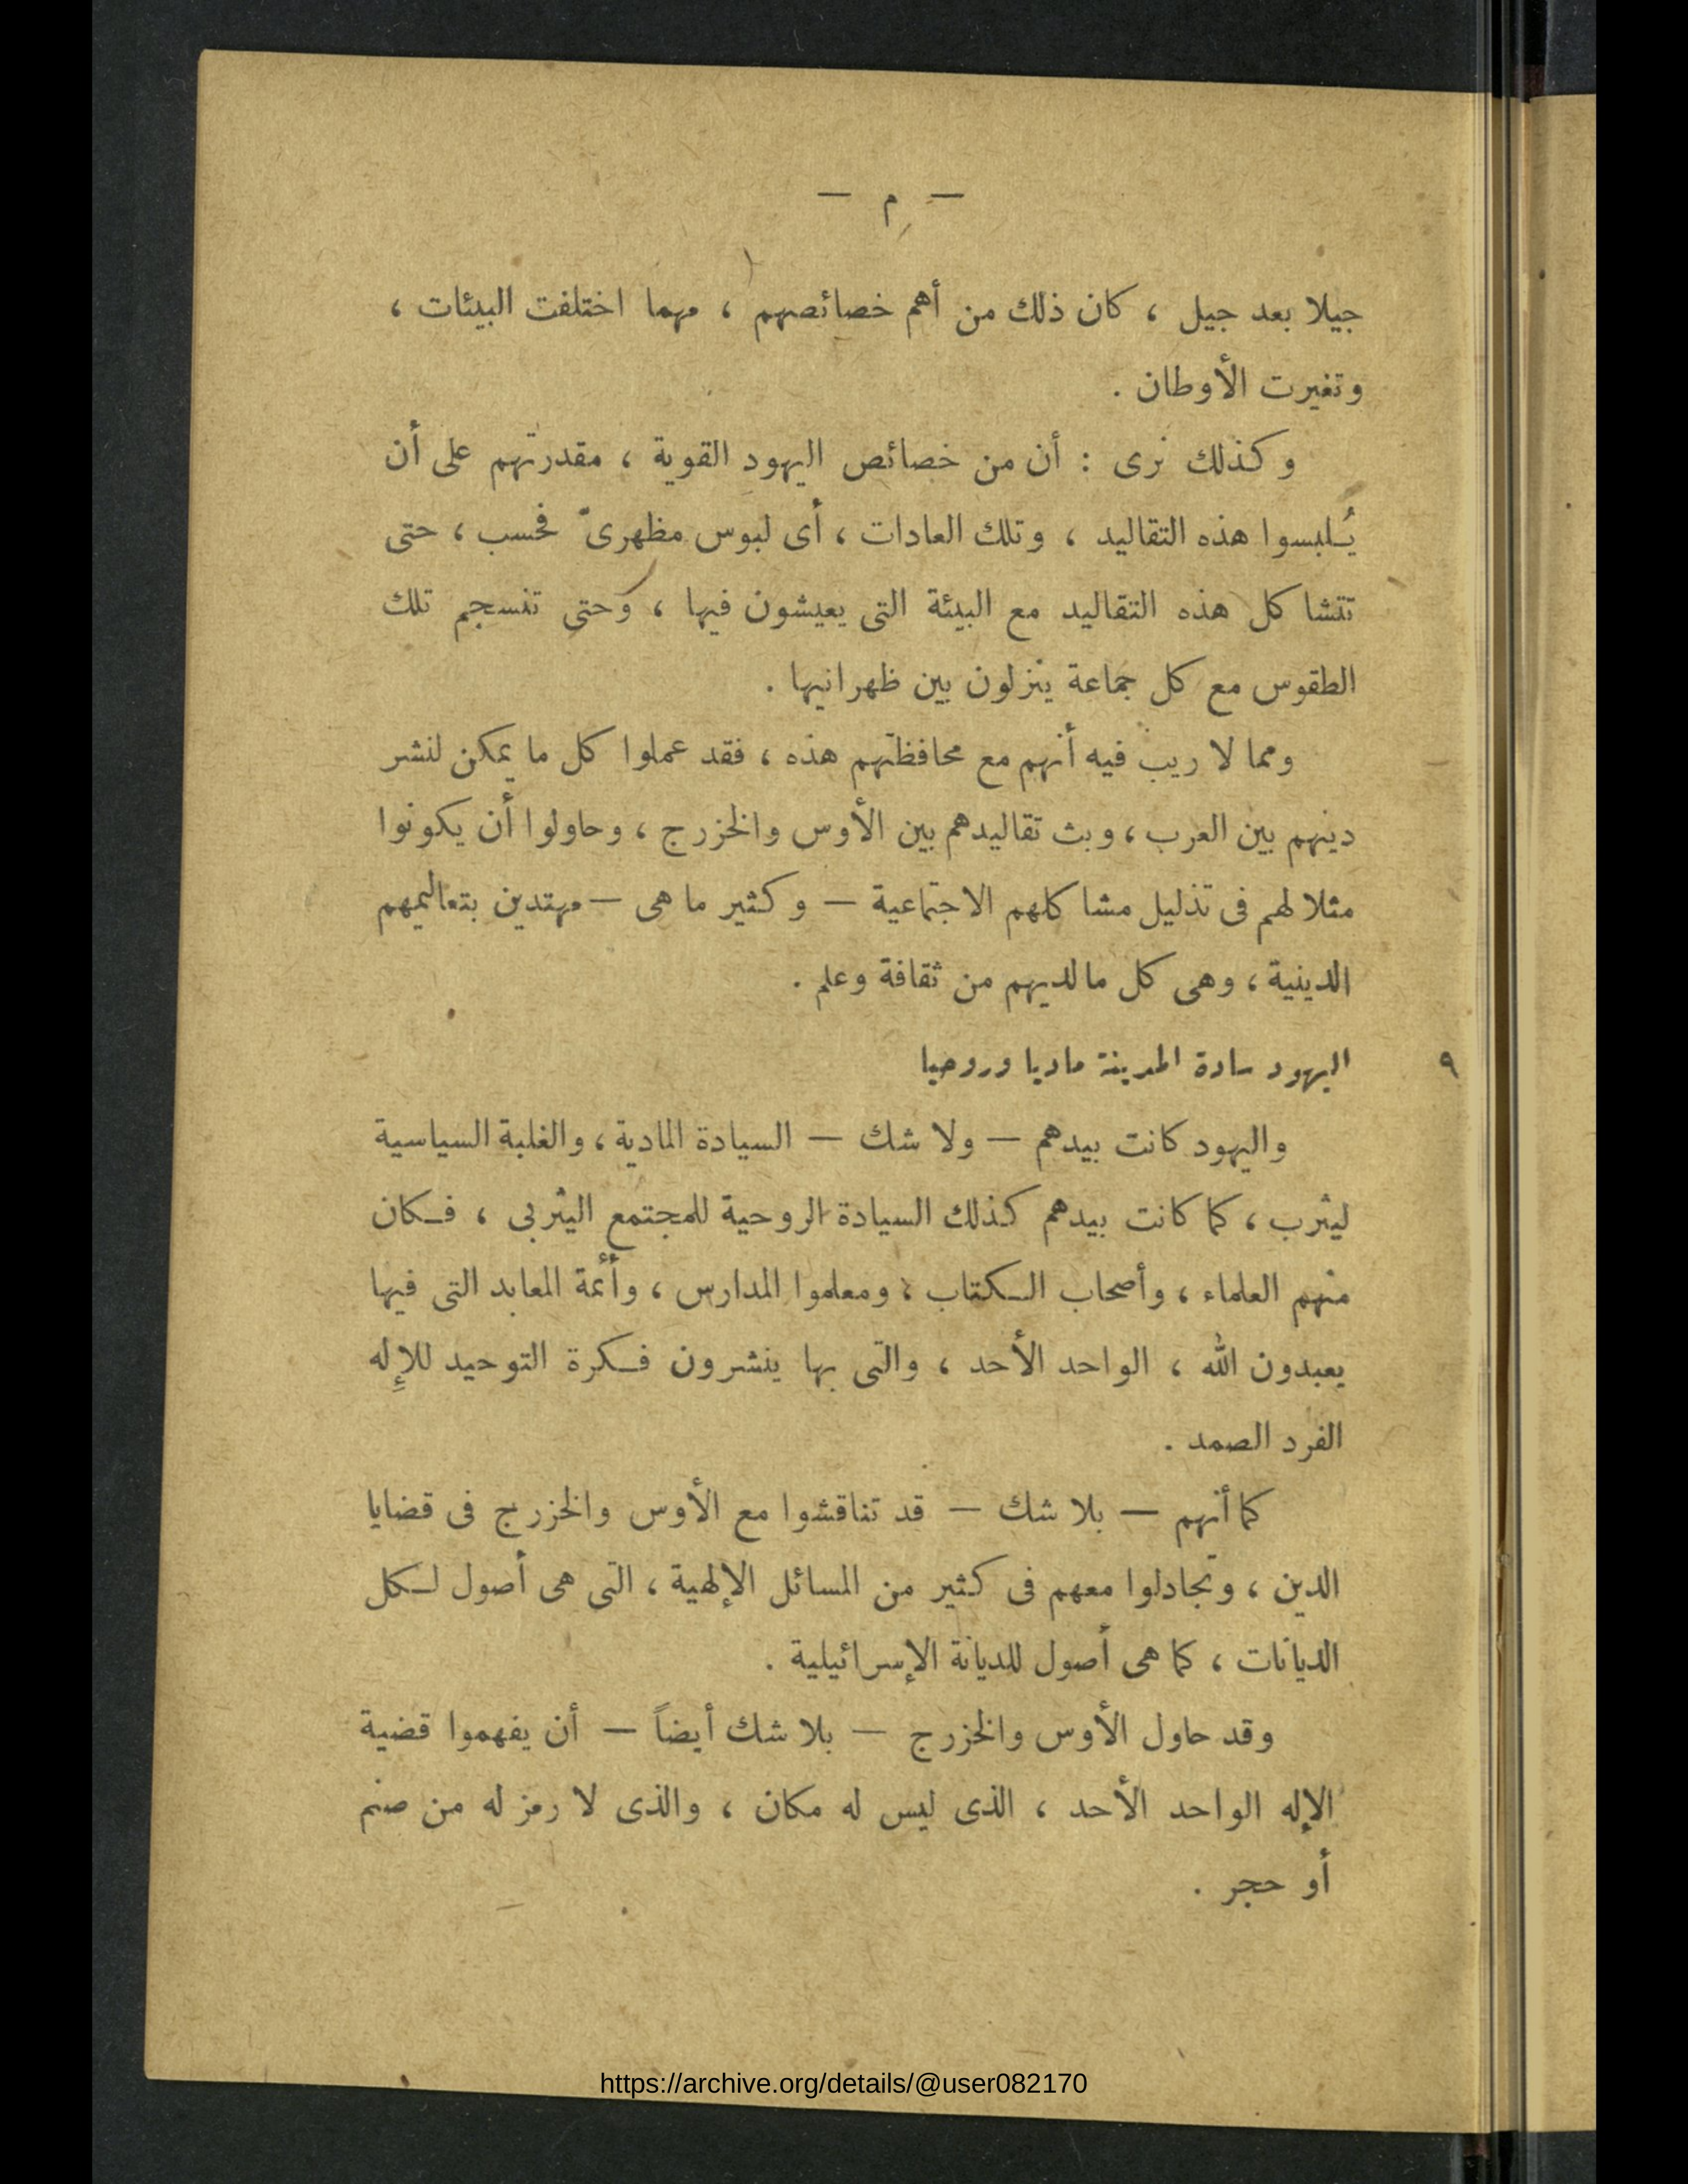 — م —
جيلا بعد جيل ، كان ذلك من أهم خصائصهم ، مهما اختلفت البيئات ،
وتغيرت الأوطان .
وكذلك نرى : أن من خصائص اليهود القوية ، مقدرتهم على أن
يُلبسوا هذه التقاليد ، وتلك العادات ، أى لبوس مظهرىّ فحسب ، حتى
تتشاكل هذه التقاليد مع البيئة التى يعيشون فيها ، وحتى تنسجم تلك
الطقوس مع كل جماعة ينزلون بين ظهرانيها .
ومما لا ريب فيه أنهم مع محافظتهم هذه ، فقد عملوا كل ما يمكن لنشر
دينهم بين العرب ، وبث تقاليدهم بين الأوس والخزرج ، وحاولوا أن يكونوا
مثلا لهم فى تذليل مشاكلهم الاجتماعية — وكثير ما هى — مهتدين بتعاليمهم
الدينية ، وهى كل مالديهم من ثقافة وعلم .
٩ اليهود سادة المدينة ماديا وروحيا
واليهود كانت بيدهم — ولا شك — السيادة المادية ، والغلبة السياسية
ليثرب ، كما كانت بيدهم كذلك السيادة الروحية للمجتمع اليثربى ، فكان
منهم العلماء ، وأصحاب الكتاب ، ومعلموا المدارس ، وأئمة المعابد التى فيها
يعبدون الله ، الواحد الأحد ، والتى بها ينشرون فكرة التوحيد للإِله
الفرد الصمد .
كما أنهم — بلا شك — قد تناقشوا مع الأوس والخزرج فى قضايا
الدين ، وتجادلوا معهم فى كثير من المسائل الإلهية ، التى هى أصول لكل
الديانات ، كما هى أصول للديانة الإسرائيلية .
وقد حاول الأوس والخزرج — بلا شك أيضاً — أن يفهموا قضية
الإله الواحد الأحد ، الذى ليس له مكان ، والذى لا رمز له من صنم
أو حجر .
https://archive.org/details/@user082170